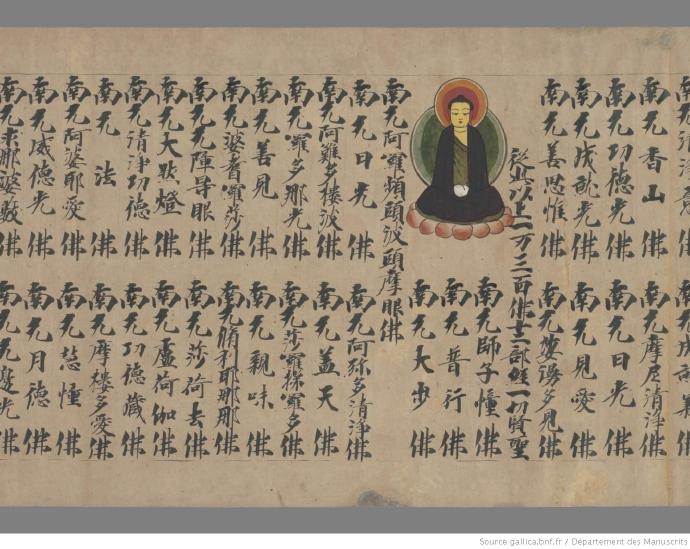 南无香山佛　南无摩尼清淨佛
南无功德光佛　南无日光佛
南无成就光佛　南无見愛佛
南无善思惟佛　南无多見佛
從此以上一万三百佛十二部經一切賢聖
南无師子憧佛
南无普行佛
南无大步佛
南无阿羅頻頭波頭摩眼佛
南无日光佛　南无阿弥多清淨佛
南无阿難多樓波佛　南无盖天佛
南无囉多那光佛　南无莎羅囉多佛
南无善見佛　南无親味佛
南无婆耆囉莎佛　南无脩利耶那那佛
南无无障导眼佛　南无莎荷去佛
南无大然燈佛　南无盧荷伽佛
南无清淨功德佛　南无功德藏佛
南无法佛　南无摩樓多愛佛
南无阿婆耶愛佛　南无慧憧佛
南无威德光佛　南无月德佛
南无求那婆藪佛　南无无邊光佛
Source gallica.bnf.fr / Département des Manuscrits